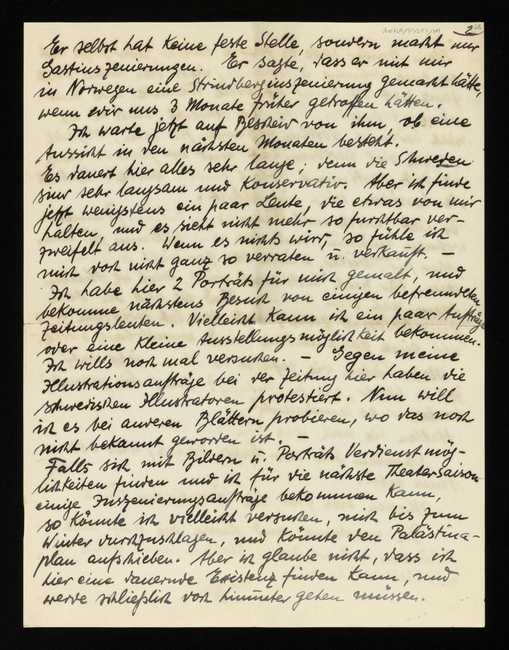 2
Er selbst hat keine feste Stelle, sondern macht nur
Gastinszenierungen. Er sagte, dass er mit mir
in Norwegen eine Strindberginszenierung gemacht hätte,
wenn wir uns 3 Monate früher getroffen hätten.
Ich warte jetzt auf Bescheid von ihm, ob eine
Aussicht in den nächsten Monaten besteht.
Es dauert hier alles sehr lange; denn die Schweden
sind sehr langsam und konservativ. Aber ich finde
jetzt wenigstens ein paar Leute, die etwas von mir
halten, und es sieht nicht mehr so furchtbar ver-
zweifelt aus. Wenn es nichts wird, so fühle ich
mich doch nicht ganz so verraten u. verkauft. —
Ich habe hier 2 Porträts für mich gemalt, und
bekomme nächstens Besuch von einigen befreundeten
Zeitungsleuten. Vielleicht kann ich ein paar Aufträge
oder eine kleine Ausstellungsmöglichkeit bekommen.
Ich wills noch mal versuchen. — Gegen meine
Illustrationsaufträge bei der Zeitung hier haben die
schwedischen Illustratoren protestiert. Nun will
ich es bei anderen Blättern probieren, wo das noch
nicht bekannt geworden ist. —
Falls sich mit Bildern u. Porträts Verdienstmög-
lichkeiten finden und ich für die nächste Theatersaison
einige Inszenierungsaufträge bekommen kann,
so könnte ich vielleicht versuchen, mich bis zum
Winter durchzuschlagen, und könnte den Palästina-
plan aufschieben. Aber ich glaube nicht, dass ich
hier eine dauernde Existenz finden kann, und
werde schließlich doch hinunter gehen müssen.